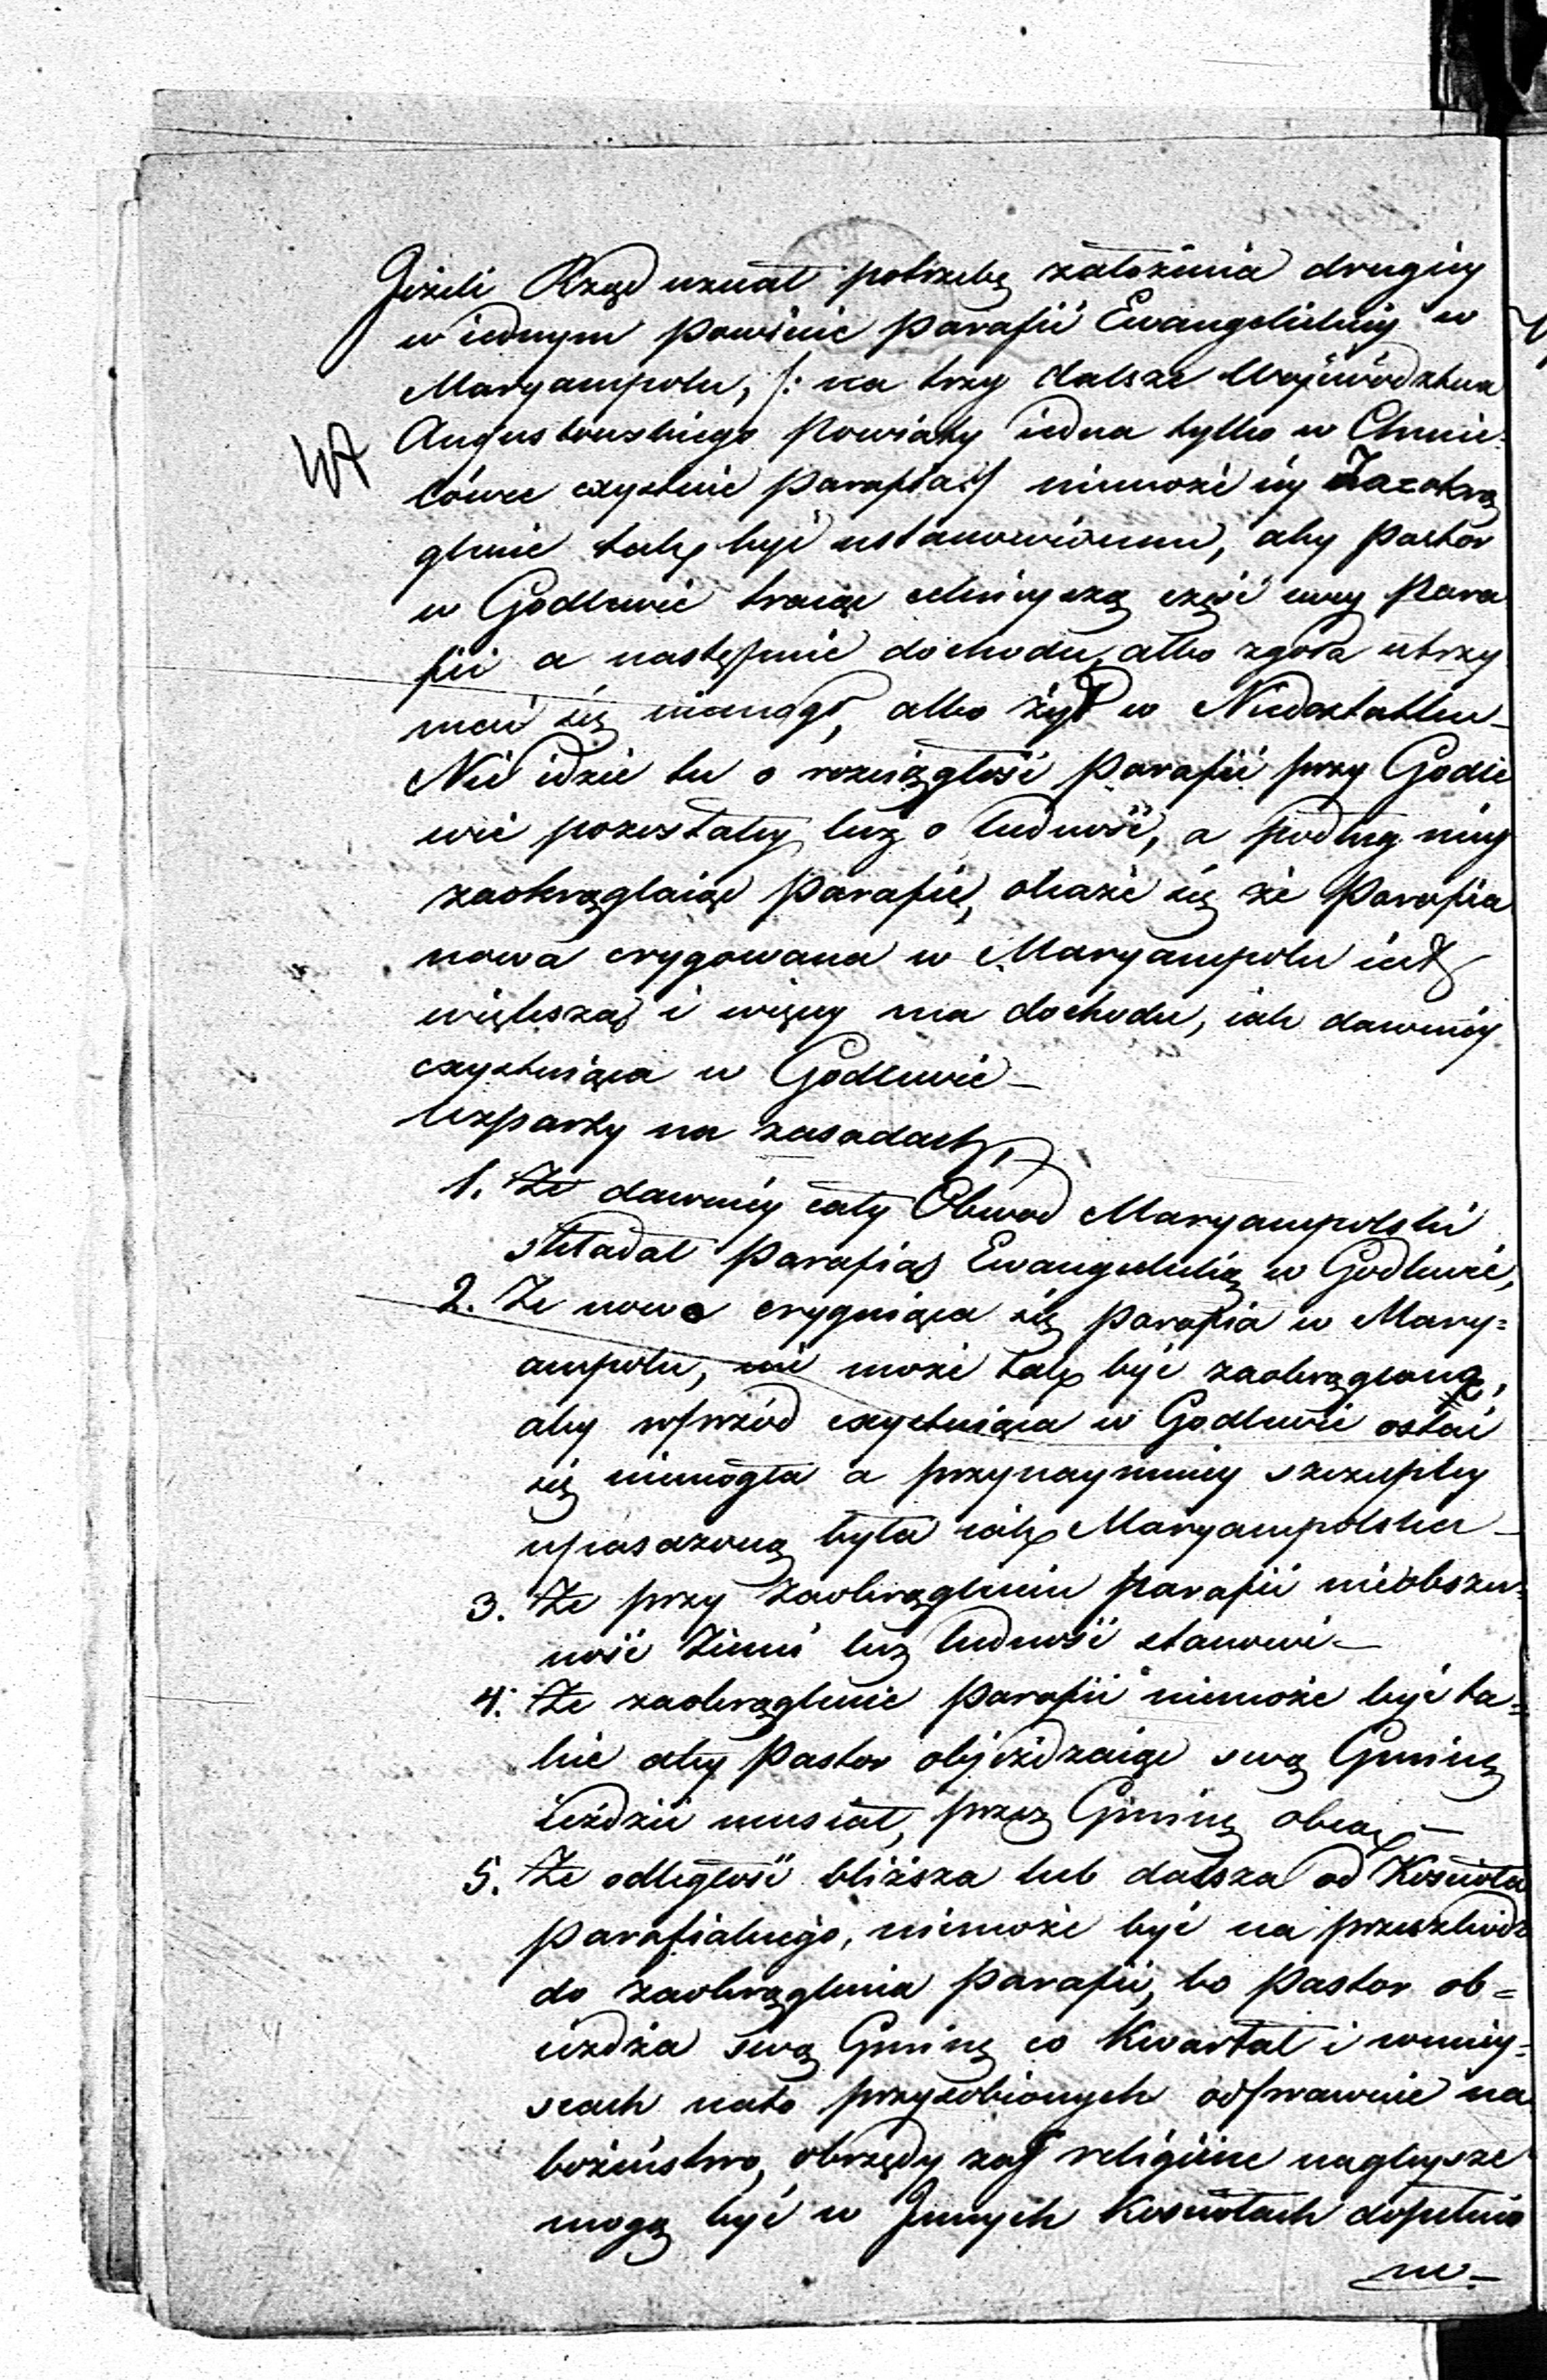 Jeżeli Rząd uznał potrzebę założenia drugiey
w iednym powiecie Parafii Ewangelickiey w
Maryampolu, /: na trzy dalsze Województwa
Augustowskiego Powiaty iedna tylko w Chmie-
lówce exystuie Parafia :/ niemoże iey Zaokrą
glenie takżę być ustanowionem, aby Pastor
w Godlewie tracąc celnieyszą część swey Para
fii a następnie dochodu, albo zgoła utrzy
mać się niemógł, albo żył w Niedostatku –
Nie idzie tu o rozciągłość Parafii przy Godle
wie pozostałey lecz o ludność, a podług niey
zaokrąglaiąc Parafie, okaże się że Parafia
nowa erygowana w Maryampolu iest
większą i więcey ma dochodu, iak dawniey
exystuiąca w Godlewie –
Wsparty na zasadach,
1. Że dawniey cały Obwód Maryampolski
składał Parafią Ewangelicką w Godlewie,
2. Że nowo erygniąca się Parafia w Mary=
ampolu, nie może tak być zaokrągloną,
aby wprzód exystuiąca w Godlewie ostać
się niemogła a przynaymniey szczupley
uposażoną była iak Maryampolska –
3. Że przy zaokrągleniu Parafii nieobszer-
ność Ziemi lecz ludność stanowi –
4. Że zaokrąglenie Parafii niemoże być ta=
kie aby Pastor objeżdzaiąc swą Gminę
ieździć musiał, przez Gminę obcą –
5. Że odległość bliższa lub dalsza od Kościoła
Parafialnego, niemoże być na przeszkodz
do zaokrąglenia Parafii, bo Pastor ob=
ieżdża swą Gminę co Kwartał i w miey=
scach nato przysobionych odprawuie na
bożeństwo, obrzędy zaś religiine nagleysze
mogą być w Innych Kościołach dopełnio
ne –